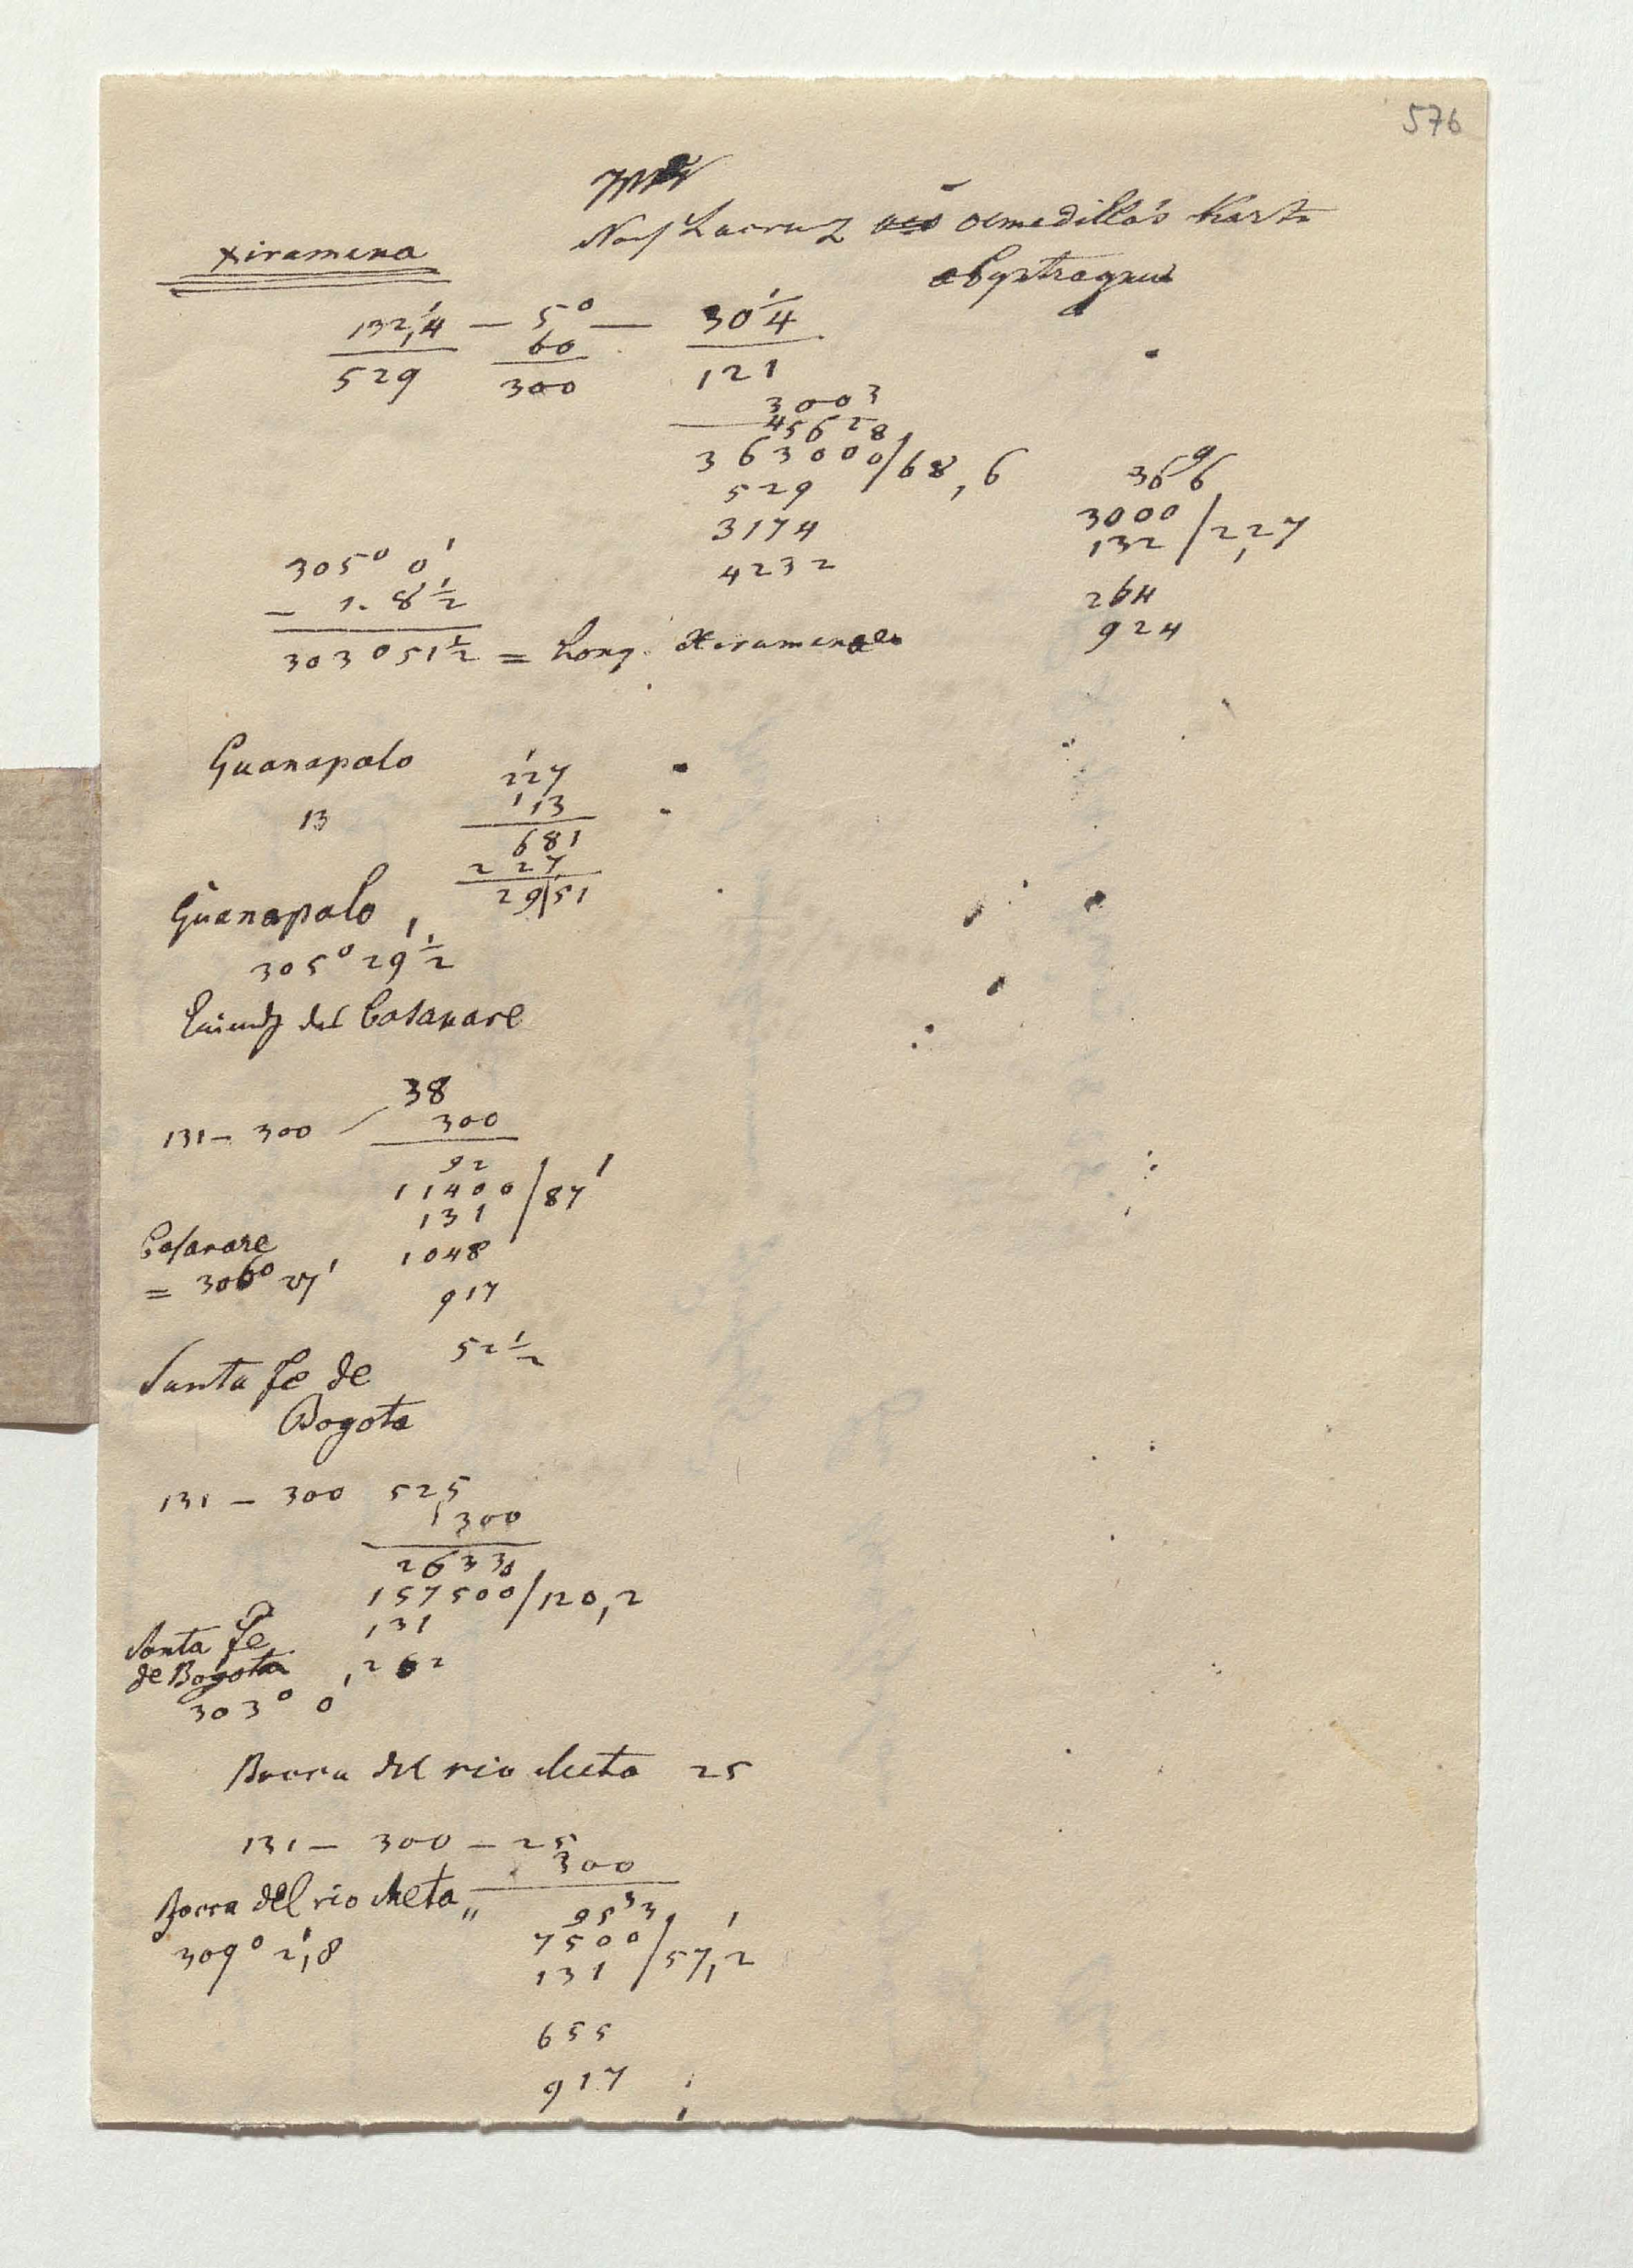 576
Nach Lacruz Olmedilla's Karte
abgetragen
Xiramena
132,1/4 — 5° — 30 1/4
60
529 300 121
3003
45628
363000/68,6
529
3174
4232
3696
3000/2,27
132
264
924
305° 0'
— 1. 8 1/2
303° 51 1/2 = Long. Xiramena
Guanapalo
13
227
113
681
227
29|51
Guanapalo
305° 29 1/2
Casanare
38
131 — 300 — 300
92
11400/87'
131
1048
917
Casanare
= 306° 27'
52 1/2
Santa Fe de
Bogota
131 — 300 525
300
2633
157500/120,2
131
262
Santa Fe
de Bogota
303° 0'
Bocca del rio Meta 25
131 — 300 — 25
300
Bocca del rio Meta
309° 2,8
9533
7500/57,2
131
655
917